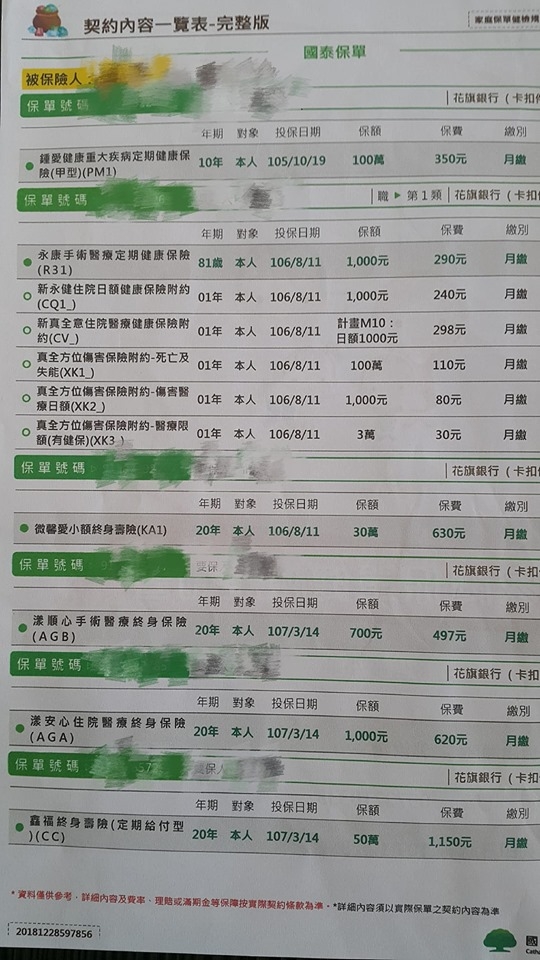 契約內容一覽表-完整版
家庭保單健檢
國泰保單
被保險人：
保單號碼 花旗銀行（卡扣
年期 對象 投保日期 保額 保費 繳別
鍾愛健康重大疾病定期健康保
險(甲型)(PM1) 10年 本人 105/10/19 100萬 350元 月繳
保單號碼 職 ▶ 第1類 花旗銀行（卡扣
年期 對象 投保日期 保額 保費 繳別
永康手術醫療定期健康保險
(R31) 81歲 本人 106/8/11 1,000元 290元 月繳
新永健住院日額健康保險附約
(CQ1_) 01年 本人 106/8/11 1,000元 240元 月繳
新真全意住院醫療健康保險附
約(CV_) 01年 本人 106/8/11 計畫M10：
日額1000元 298元 月繳
真全方位傷害保險附約-死亡及
失能(XK1_) 01年 本人 106/8/11 100萬 110元 月繳
真全方位傷害保險附約-傷害醫
療日額(XK2_) 01年 本人 106/8/11 1,000元 80元 月繳
真全方位傷害保險附約-醫療限
額(有健保)(XK3_) 01年 本人 106/8/11 3萬 30元 月繳
保單號碼 花旗銀行（卡扣
年期 對象 投保日期 保額 保費 繳別
微馨愛小額終身壽險(KA1) 20年 本人 106/8/11 30萬 630元 月繳
保單號碼 要保 花旗銀行（卡扣
年期 對象 投保日期 保額 保費 繳別
漾順心手術醫療終身保險
(AGB) 20年 本人 107/3/14 700元 497元 月繳
保單號碼 花旗銀行（卡扣
年期 對象 投保日期 保額 保費 繳別
漾安心住院醫療終身保險
(AGA) 20年 本人 107/3/14 1,000元 620元 月繳
保單號碼 保人 花旗銀行（卡扣
年期 對象 投保日期 保額 保費 繳別
鑫福終身壽險(定期給付型
)(CC) 20年 本人 107/3/14 50萬 1,150元 月繳
*資料僅供參考，詳細內容及費率、理賠或滿期金等保障按實際契約條款為準。*詳細內容須以實際保單之契約內容為準
20181228597856
國
Catha